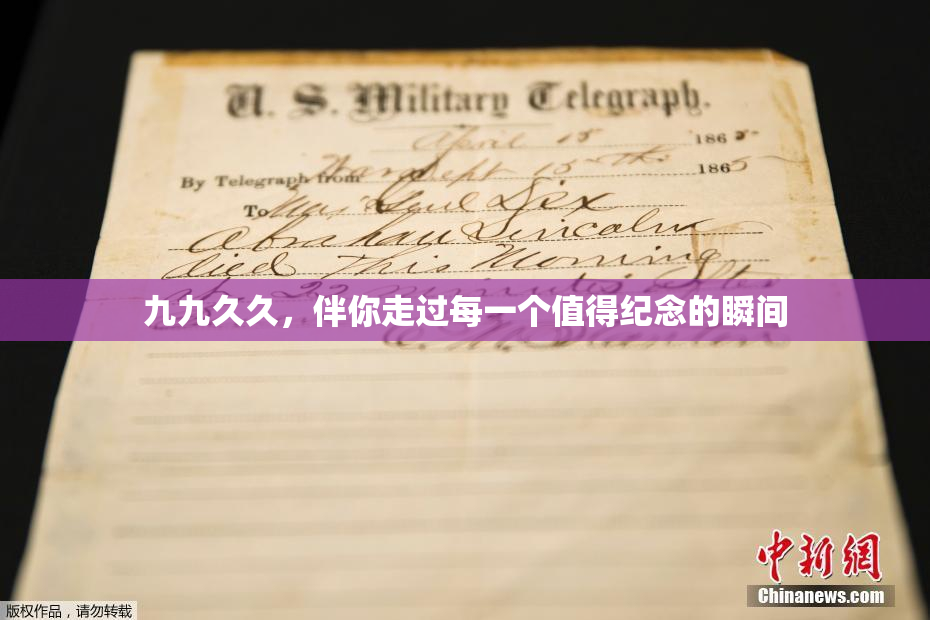 U. S. Military Telegraph.
April 15 1865
By Telegraph from War Dept 15th 1865
To Maj Genl Dix
Abraham Lincoln
died This Morning
at 22 minutes after
九九久久，伴你走过每一个值得纪念的瞬间
E. M. Stanton
中新网
Chinanews.com
版权作品，请勿转载